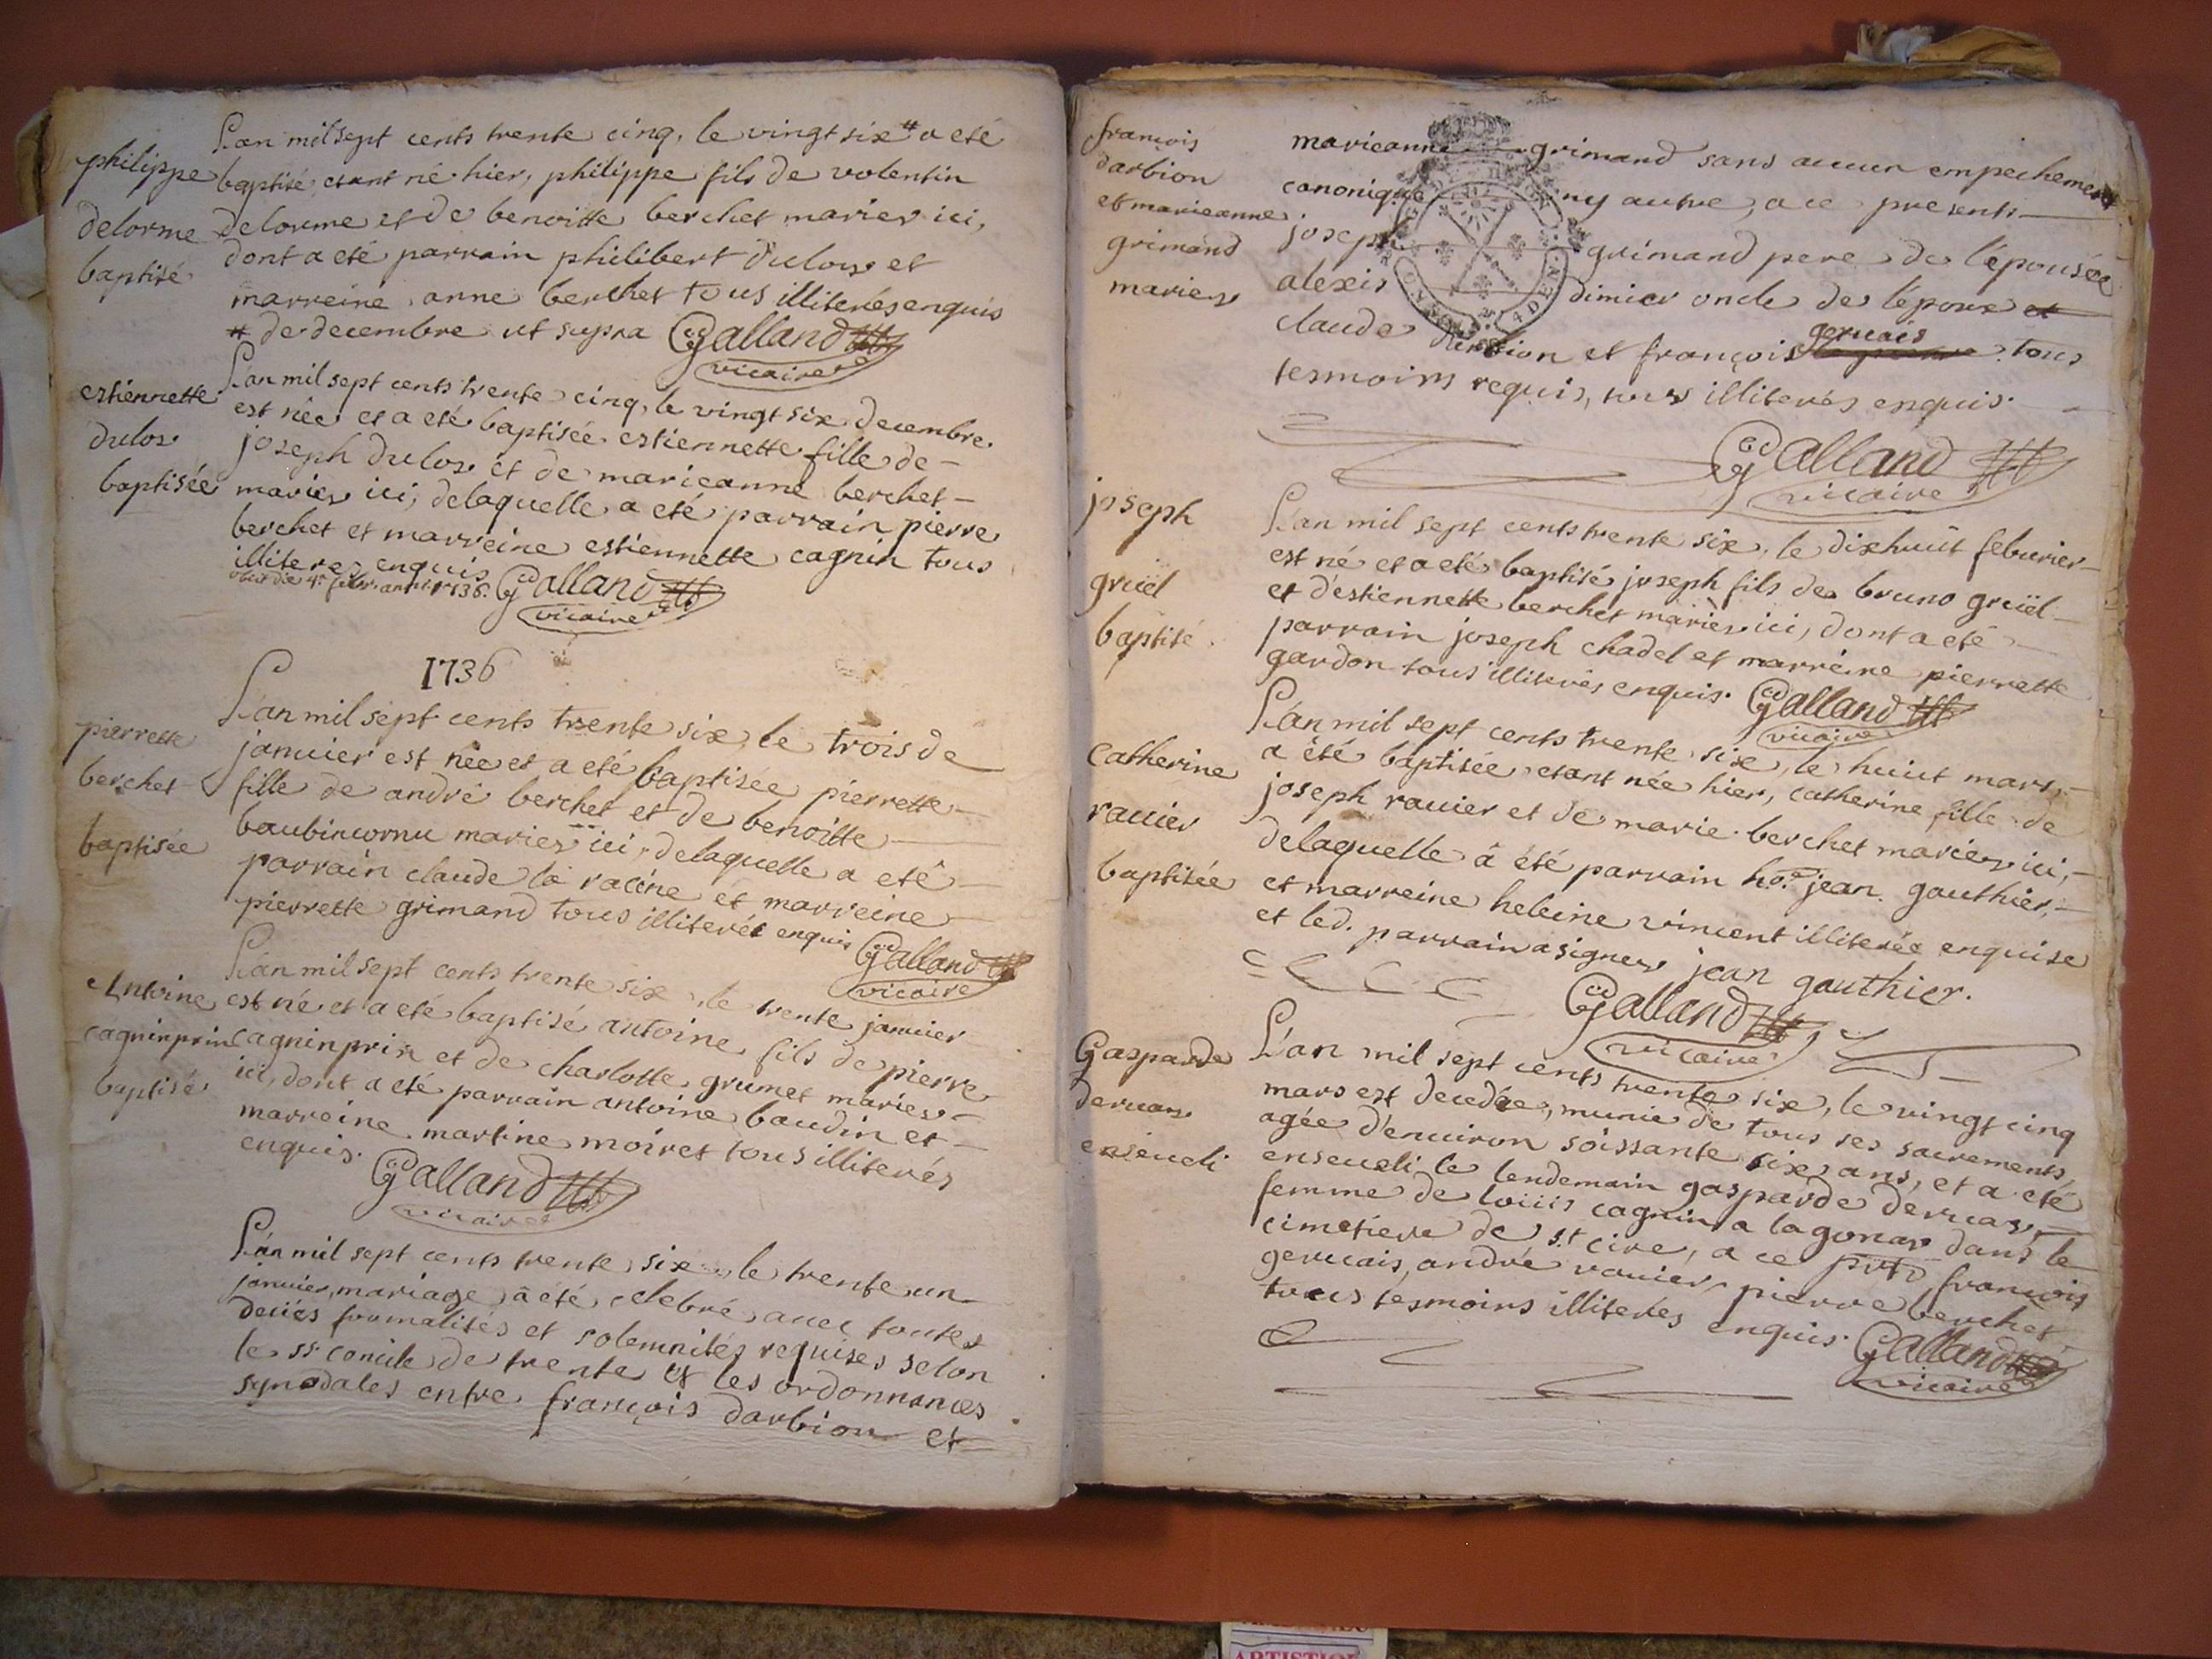 L'an mil sept cents trente cinq, le vingt six # a eté
philippe
baptisé, etant né hier, philippe fils de valentin
delorme
delorme et de benoitte berchet maries ici,
baptisé
dont a eté parrain philibert dulos et
marreine anne berchet tous illiterés enquis
# de decembre ut supra Galland
vicaire
L'an mil sept cents trente cinq, le vingt six decembre
estiennette
est née et a eté baptisée estiennette fille de
dulos
joseph dulos et de marieanne berchet
baptisée
maries ici, delaquelle a eté parrain pierre
berchet et marreine estiennette cagnin tous
illiteres enquis
obiit die 4a febr. anni 1736. Galland
vicaire
1736
L'an mil sept cents trente six, le trois de
pierrette
januier est née et a eté baptisée pierrette
berchet
fille de andré berchet et de benoitte
baptisée
baubincornu maries ici, delaquelle a eté
parrain claude la racine et marreine
pierrette grimand tous illiterés enquis Galland
vicaire
L'an mil sept cents trente six, le trente januier
Antoine
est né et a eté baptisé antoine, fils de pierre
cagninprin
cagninprin et de charlotte grumet maries
baptisé
ici, dont a eté parrain antoine baudin et
marreine martine moiret tous illiterés
enquis. Galland
vicaire
L'an mil sept cents trente six, le trente un
januier, mariage a été celebré auec toutes
deües formalités et solemnités requises selon
le st concile de trente et les ordonnances
synodales entre françois darbion et
françois
darbion
et marieanne
grimand
maries
marieanne grimand sans aucun empechement
canonique ny autre, a ce presents
joseph grimand pere de l'epousée
alexis dimier oncle de l'epoux et
claude darbion et françois geruais tous
tesmoins requis, tous illiterés enquis.
Galland
vicaire
joseph
L'an mil sept cents trente six, le dixhuit feburier
gruël
est né et a eté baptisé joseph fils de bruno gruël
baptisé
et d'estiennette berchet maries ici, dont a eté
parrain joseph chadel et marreine pierrette
gardon tous illiterés enquis. Galland
vicaire
L'an mil sept cents trente six, le huict mars,
Catherine
a été baptisée etant née hier, catherine fille de
rauier
joseph rauier et de marie berchet maries ici,
baptisée
delaquelle à été parrain ho.e jean gauthier,
et marreine heleine vincent illiterée enquise
et led. parrain a signer jean gauthier.
Galland
vicaire
Gasparde
L'an mil sept cents trente six, le vingt cinq
deruas
mars est decedée, munie de tous ses sacrements,
enseueli
agée d'enuiron soissante six ans, et a eté
enseueli le lendemain gasparde deruas,
femme de loüis cagnin a lagonas dans le
cimetiere de st cire, a ce pnts françois
geruais, andré rauier, pierre berchet
tous tesmoins illiterés enquis. Galland
vicaire